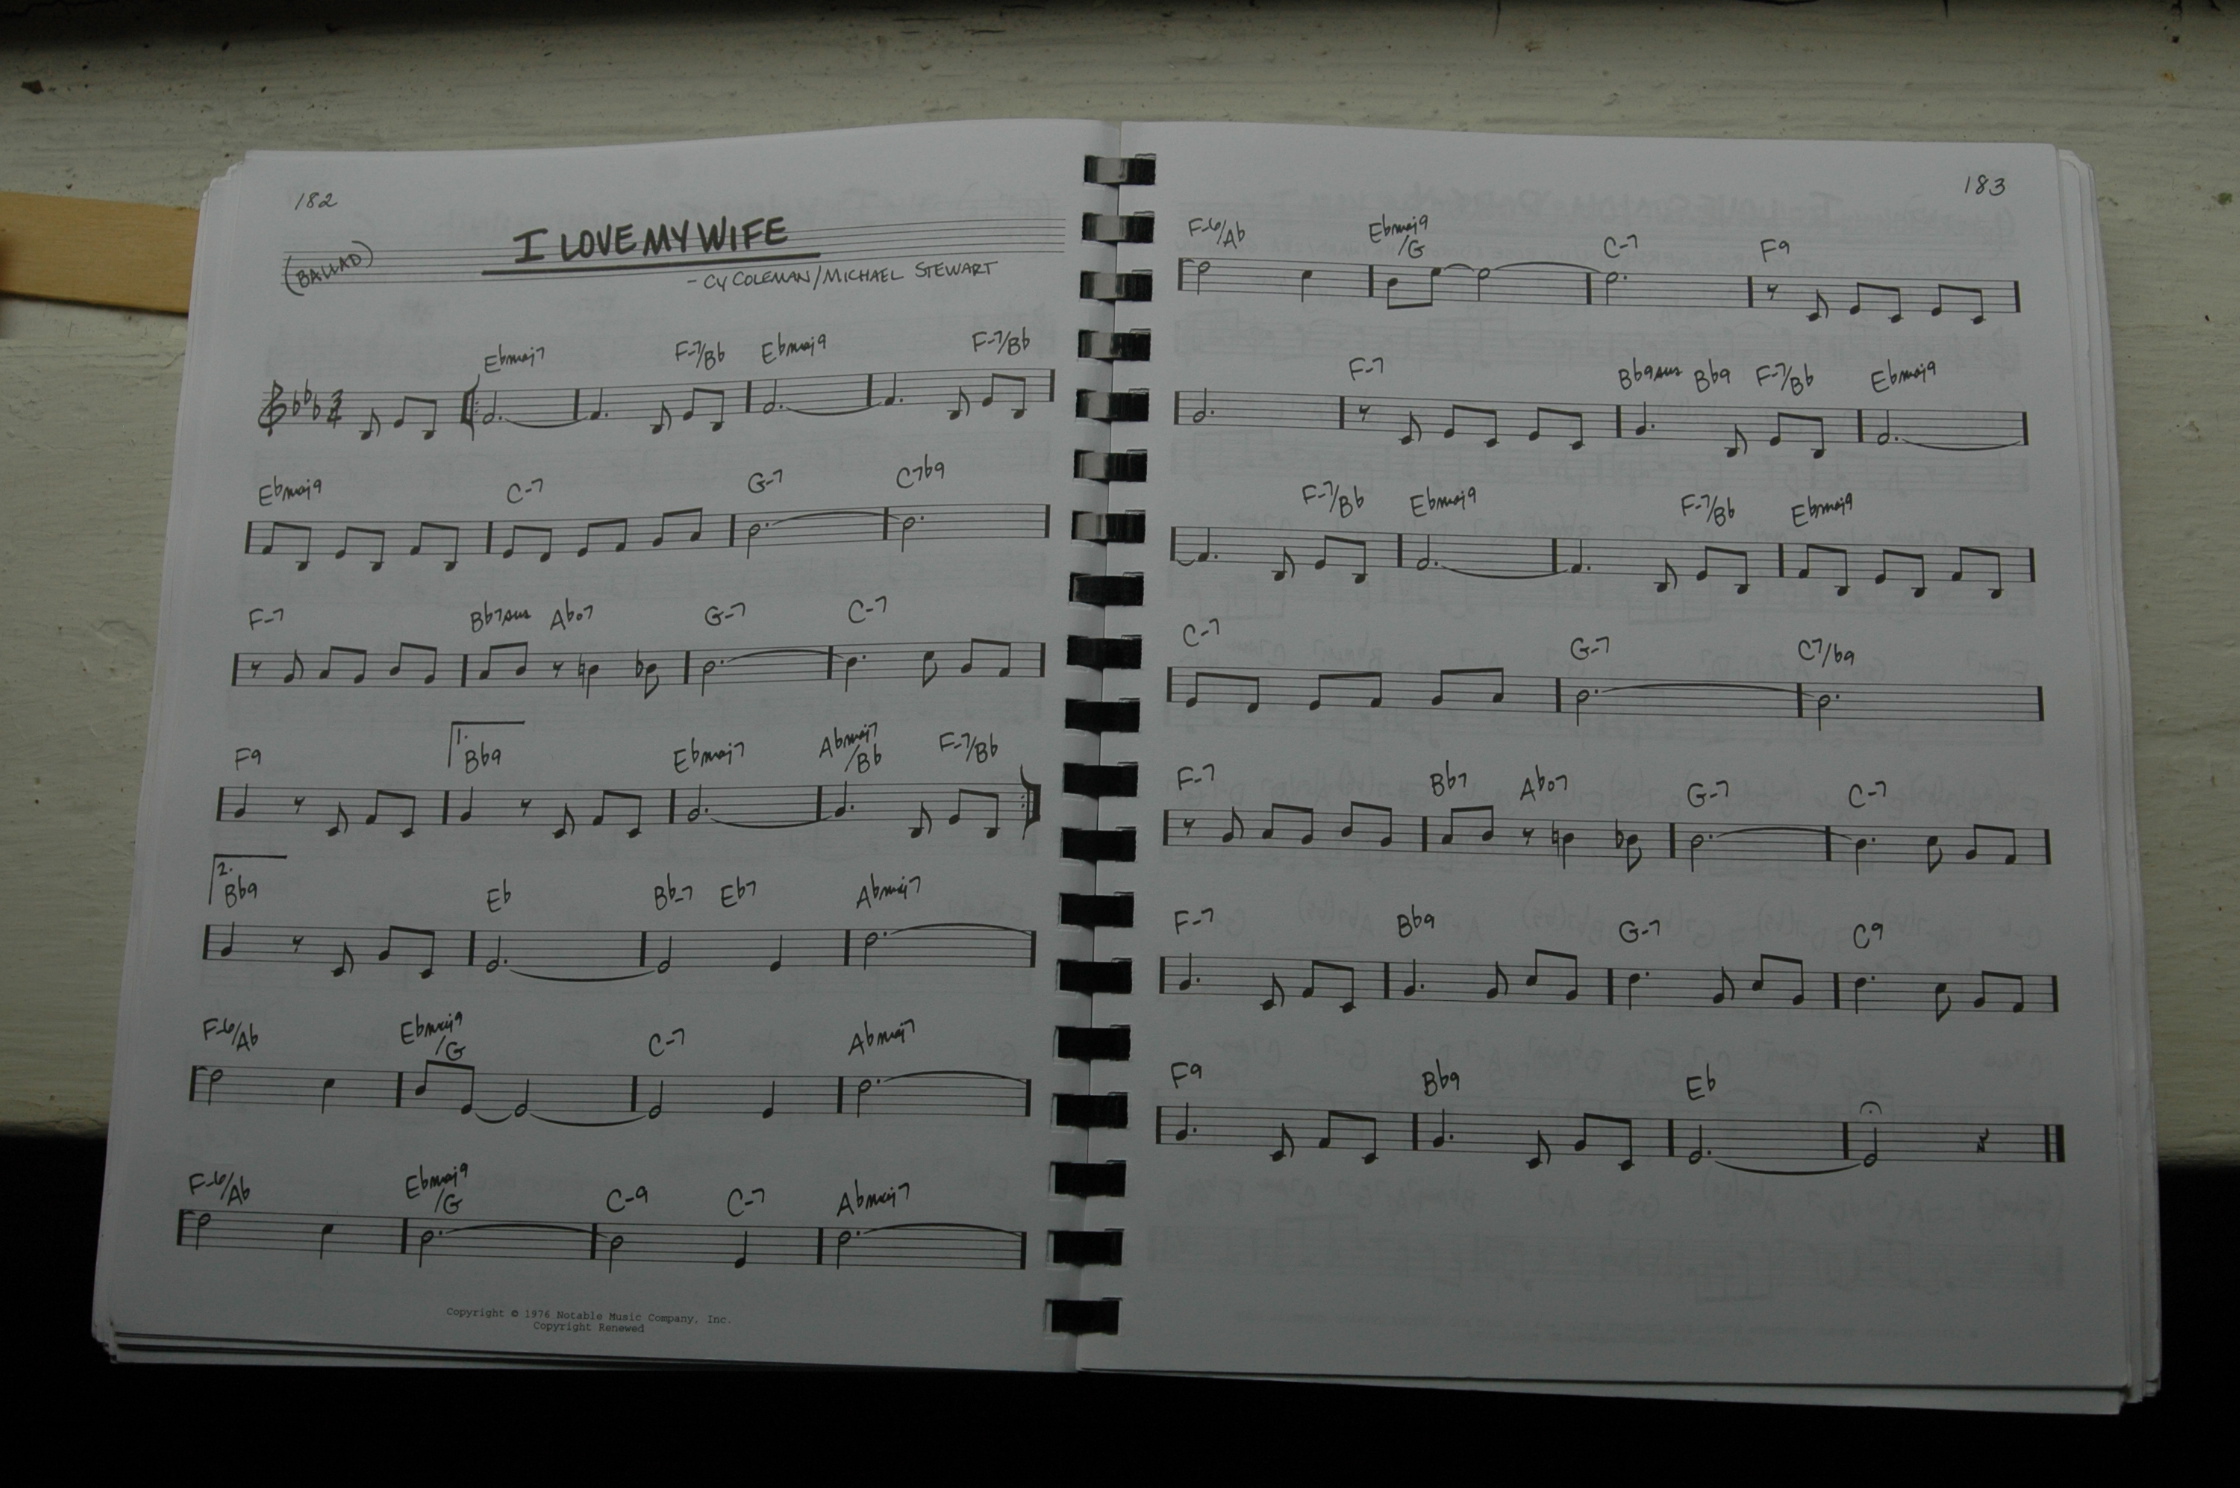 182
I LOVE MY WIFE
(BALLAD)
- CY COLEMAN/MICHAEL STEWART
Ebmaj7 F-7/Bb Ebmaj9 F-7/Bb
Ebmaj9 C-7 G-7 C7b9
F-7 Bb7sus Abo7 G-7 C-7
F9 1. Bb9 Ebmaj7 Abmaj7/Bb F-7/Bb
2. Bb9 Eb Bb-7 Eb7 Abmaj7
F-6/Ab Ebmaj9/G C-7 Abmaj7
F-6/Ab Ebmaj9/G C-9 C-7 Abmaj7
Copyright © 1976 Notable Music Company, Inc.
Copyright Renewed
183
F-6/Ab Ebmaj9/G C-7 F9
F-7 Bb9sus Bb9 F-7/Bb Ebmaj9
F-7/Bb Ebmaj9 F-7/Bb Ebmaj9
C-7 G-7 C7/b9
F-7 Bb7 Abo7 G-7 C-7
F-7 Bb9 G-7 C9
F9 Bb9 Eb